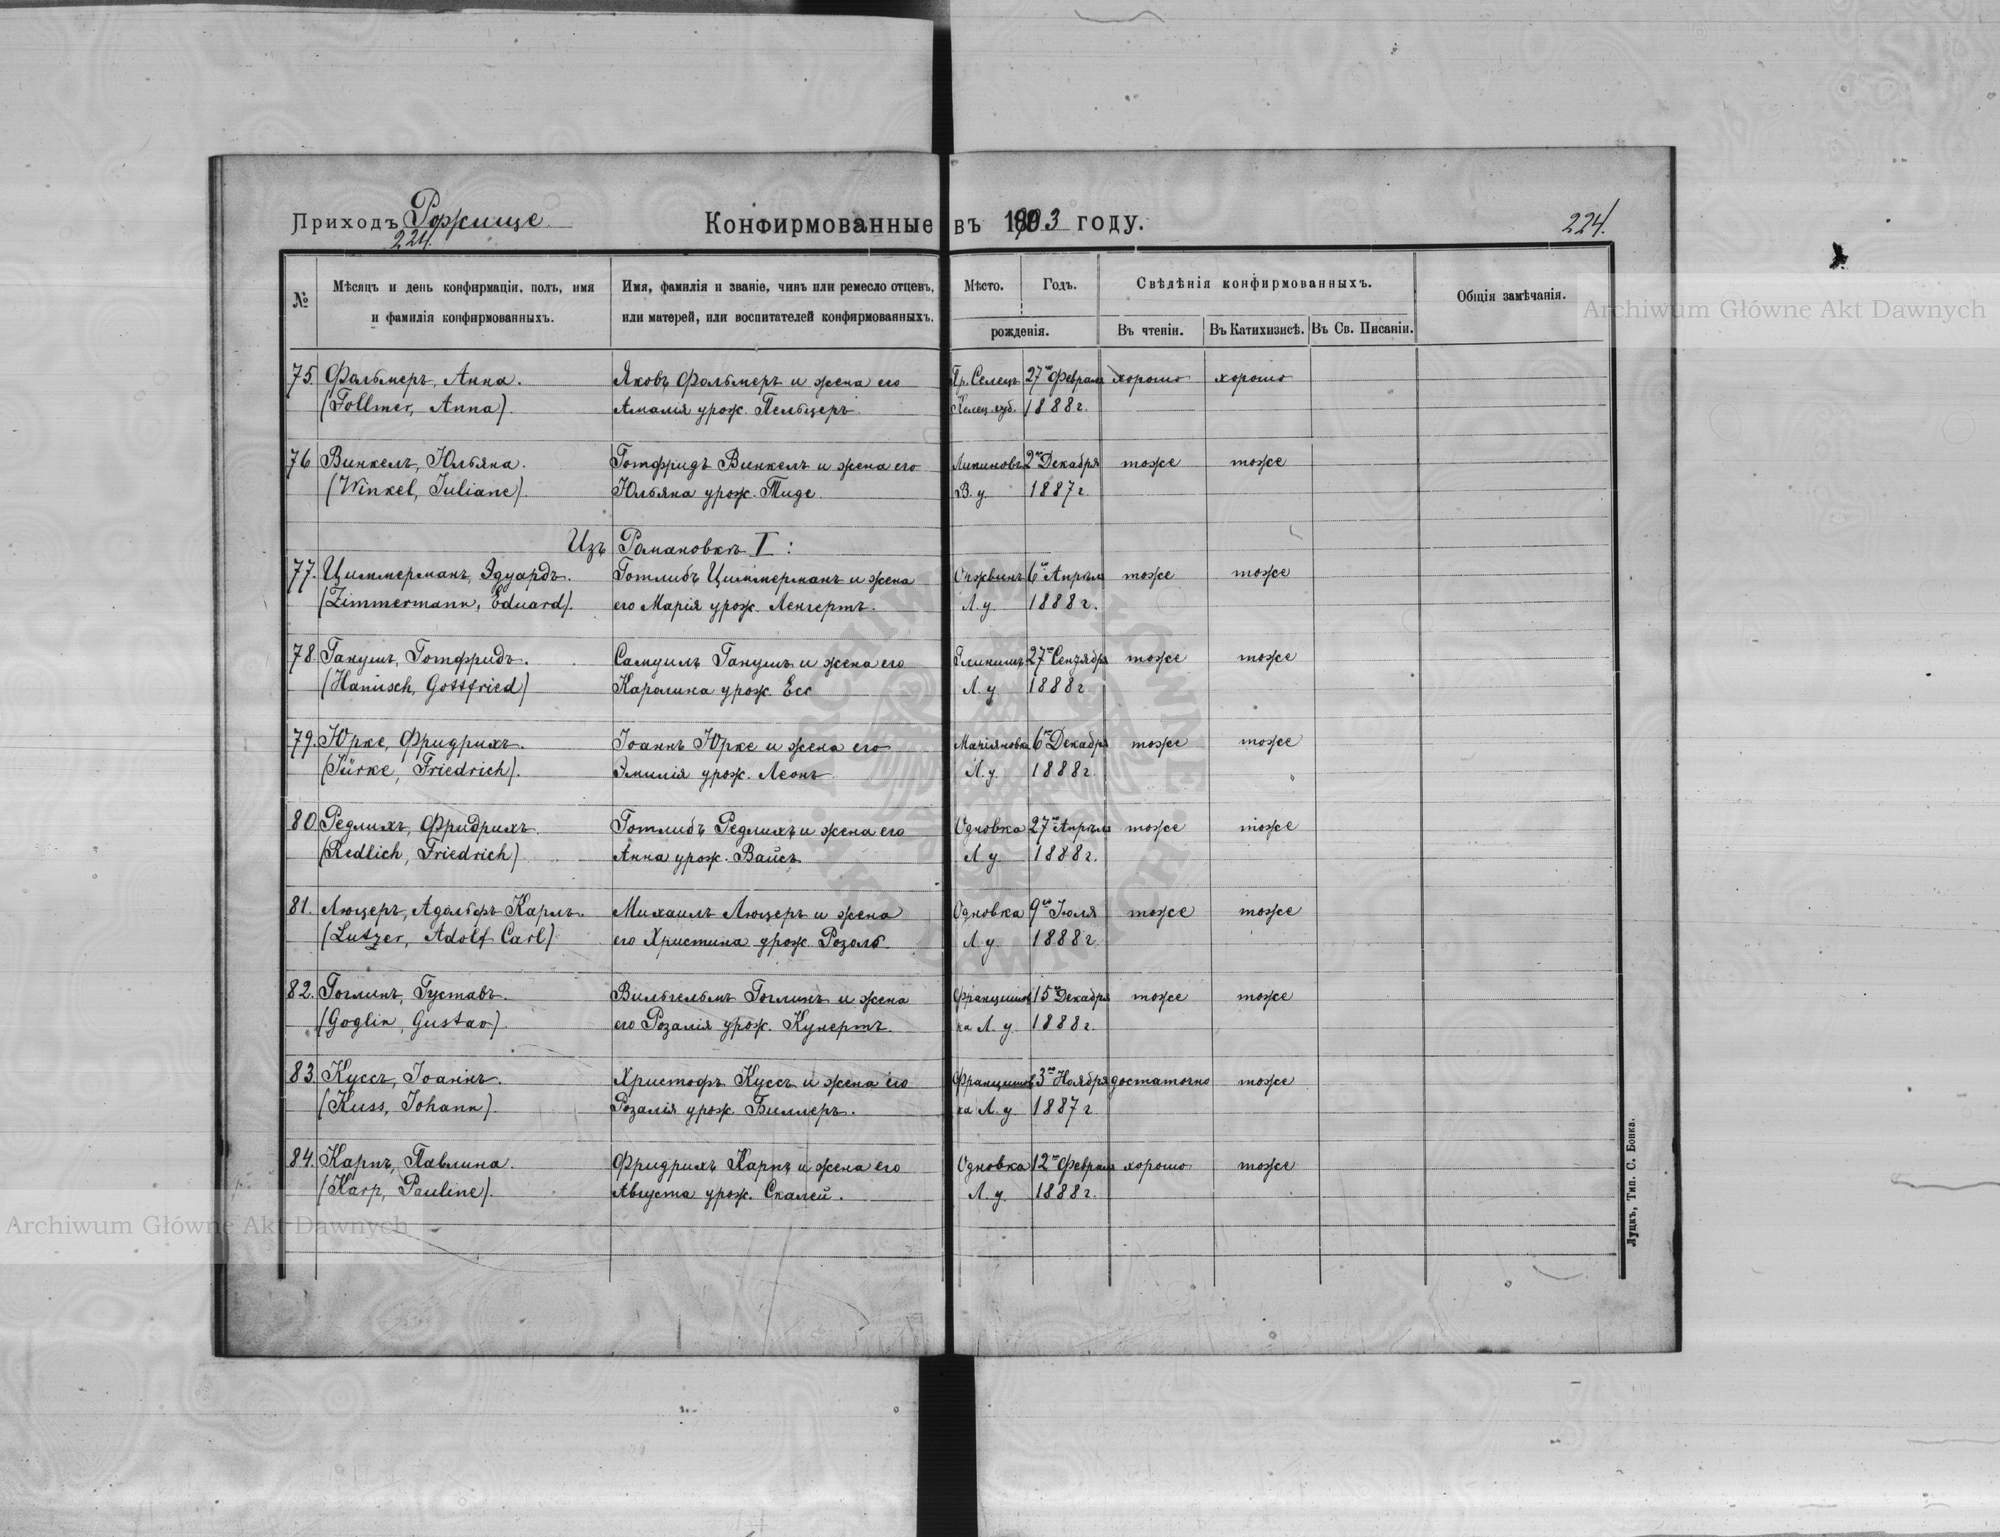 Приходъ Рожище Конфирмованные въ 1903 году. 224.
224.
№
Мѣсяцъ и день конфирмаціи, полъ, имя
и фамилія конфирмованныхъ.
Имя, фамилія и званіе, чинъ или ремесло отцевъ,
или матерей, или воспитателей конфирмованныхъ.
Мѣсто. Годъ.
рожденія.
Свѣдѣнія конфирмованныхъ.
Въ чтеніи. Въ Катихизисѣ. Въ Св. Писаніи.
Общія замѣчанія.
Archiwum Główne Akt Dawnych
75. Фольмеръ, Анна. Яковъ Фольмеръ и жена его Пр. Селецъ 27го Февраля хорошо хорошо
(Follmer, Anna). Амалія урож. Пельцеръ. Келец. губ. 1888 г.
76 Винкелъ, Юльяна. Готфридъ Винкелъ и жена его 2го Декабря тоже тоже
(Winkel, Juliane). Юльяна урож. Тиде. В. у. 1887 г.
Изъ Романовкѣ I :
77. Циммерманъ, Эдуардъ. Готлибъ Циммерманъ и жена 6го Апрѣля тоже тоже
(Zimmermann, Eduard). его Марія урож. Ленгертъ. Л. у. 1888 г.
78. Ганушъ, Готфридъ. Самуилъ Ганушъ и жена его 27го Сентября тоже тоже
(Hanusch, Gottfried) Каролина урож. Есс Л. у. 1888 г.
79. Юрке, Фридрихъ. Іоаннъ Юрке и жена его 6го Декабря тоже тоже
(Jürke, Friedrich). Эмилія урож. Леонъ. Л. у. 1888 г.
80 Редлихъ, Фридрихъ. Готлибъ Редлихъ и жена его Одновка 27го Апрѣля тоже тоже
(Redlich, Friedrich) Анна урож. Вайсъ Л. у. 1888 г.
81. Люцеръ, Адольфъ Карлъ. Михаилъ Люцеръ и жена Одновка 9го Іюля тоже тоже
(Lutzer, Adolf Carl) его Христина урож. Розоль. Л. у. 1888 г.
82. Гоглинъ, Густавъ. Вильгельмъ Гоглинъ и жена Францишов 15го Декабря тоже тоже
(Goglin, Gustav). его Розалія урож. Кунертъ. ка Л. у. 1888 г.
83. Куссъ, Іоаннъ. Христофъ Куссъ и жена его Францишов 3го Ноября достаточно тоже
(Kuss, Johann). Розалія урож. Биллеръ. ка Л. у. 1887 г.
84. Карпъ, Павлина. Фридрихъ Карпъ и жена его Одновка 12го Февраля хорошо тоже
(Karp, Pauline). Августа урож. Скалей. Л. у. 1888 г.
Archiwum Główne Akt Dawnych
Луцкъ, Тип. С. Бонка.